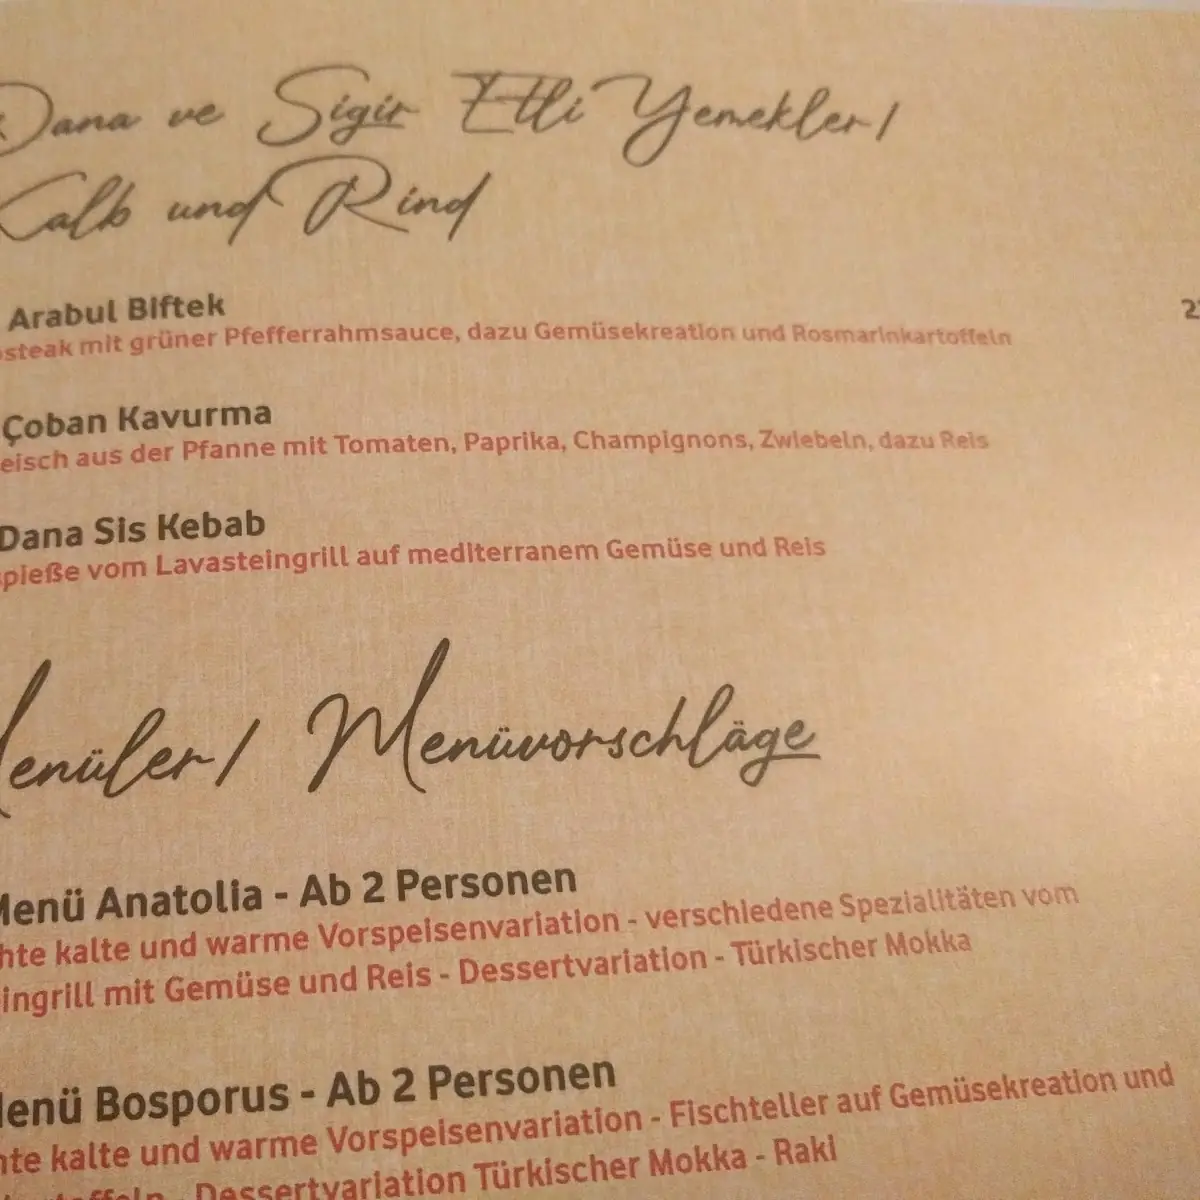 Dana ve Sigir Etli Yemekler/
Kalb und Rind
Arabul Biftek
steak mit grüner Pfefferrahmsauce, dazu Gemüsekreation und Rosmarinkartoffeln
Çoban Kavurma
eisch aus der Pfanne mit Tomaten, Paprika, Champignons, Zwiebeln, dazu Reis
Dana Sis Kebab
pieße vom Lavasteingrill auf mediterranem Gemüse und Reis
Menüler/ Menüvorschläge
Menü Anatolia - Ab 2 Personen
hte kalte und warme Vorspeisenvariation - verschiedene Spezialitäten vom
ingrill mit Gemüse und Reis - Dessertvariation - Türkischer Mokka
Menü Bosporus - Ab 2 Personen
hte kalte und warme Vorspeisenvariation - Fischteller auf Gemüsekreation und
Dessertvariation Türkischer Mokka - Raki